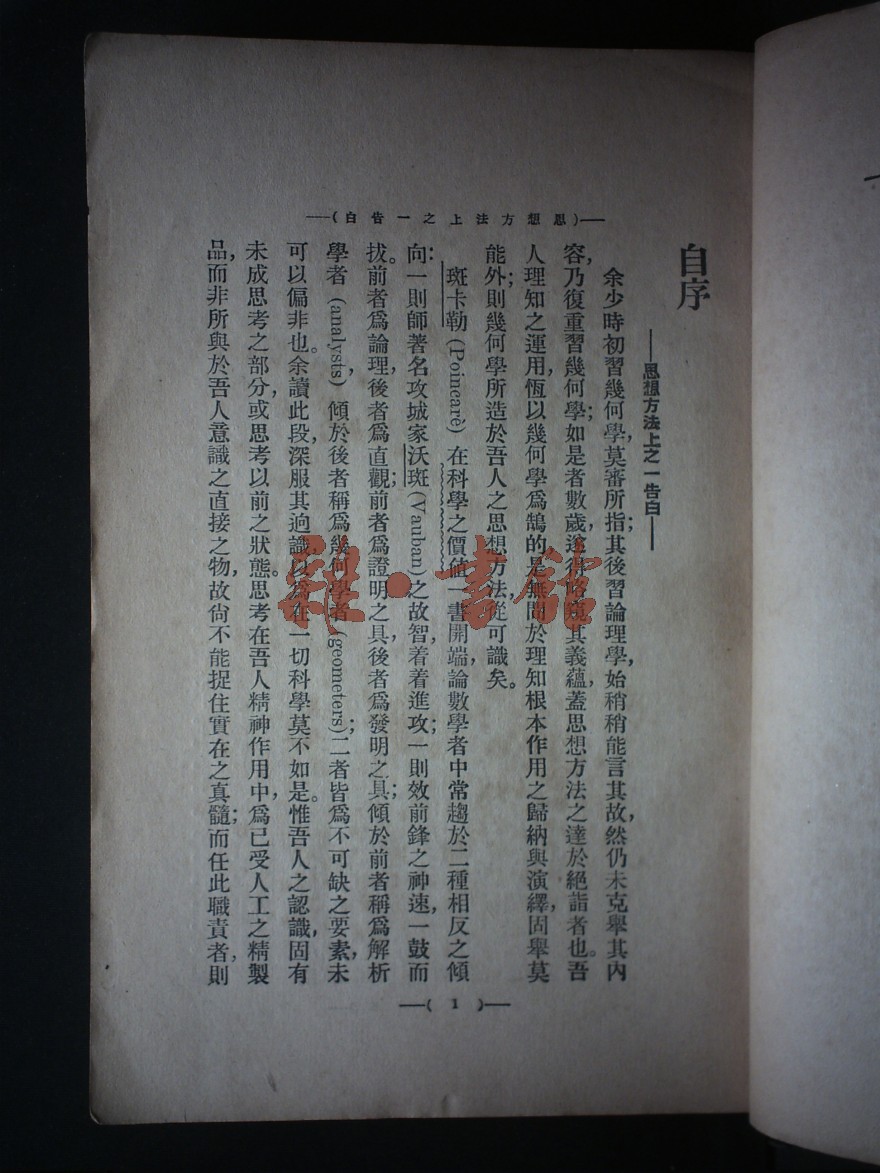 (思想方法上之一告白)
自序
——思想方法上之一告白——
余少時初習幾何學,莫審所指;其後習論理學,始稍稍能言其故,然仍未克舉其內
容,乃復重習幾何學;如是者數歲,遂得略窺其義蘊,蓋思想方法之達於絕詣者也。吾
人理知之運用,恆以幾何學爲鵠的,是無間於理知根本作用之歸納與演繹,固舉莫
能外;則幾何學所造於吾人之思想方法,從可識矣。
斑卡勒(Poincaré)在科學之價值一書開端,論數學者中常趨於二種相反之傾
向:一則師著名攻城家沃斑(Vauban)之故智,着着進攻;一則效前鋒之神速,一鼓而
拔。前者爲論理,後者爲直觀;前者爲證明之具,後者爲發明之具;傾於前者稱爲解析
學者(analysts),傾於後者稱爲幾何學者(geometers);二者皆爲不可缺之要素,未
可以偏非也。余讀此段,深服其逈識,以爲在一切科學莫不如是。惟吾人之認識,固有
未成思考之部分,或思考以前之狀態。思考在吾人精神作用中,爲已受人工之精製
品,而非所與於吾人意識之直接之物,故尙不能捉住實在之真髓;而任此職責者,則
(1)
雜·書館